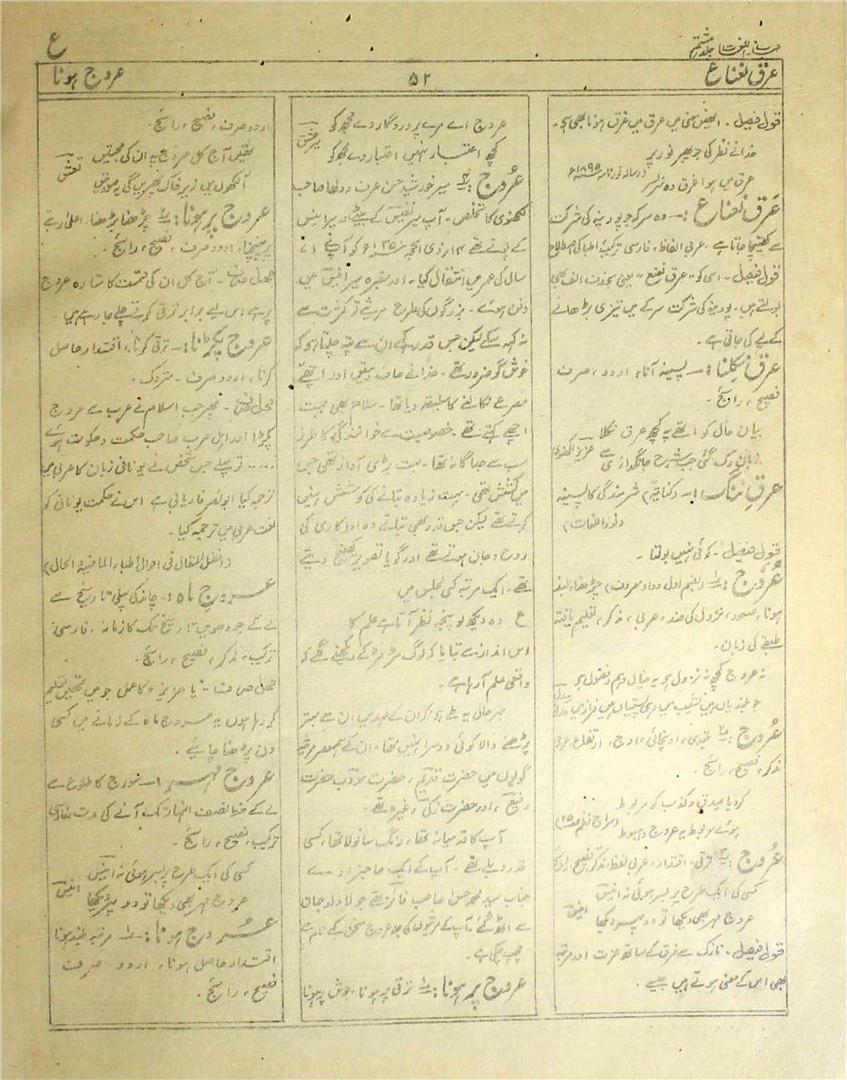 مہذب اللغات جلد ہشتم
ع
عرق نعناع
۵۲
عروج ہونا
قول فیصل ۔ انھیں معنی میں عرق میں غرق ہونا بھی ہے ۔
خدا نے نظر کی جو پھر نور پر
عرق میں ہوا غرق وہ
عَرَق نَعناع :۔ وہ سرکہ جو پودینہ کی شرکت
سے کھینچا جاتا ہے ۔ عربی الفاظ، فارسی ترکیب، اطبا کی اصطلاح
قول فیصل ۔ اسی کو "عرق نعنع" یعنی بحذف الف بھی
بولتے ہیں ۔ پودینہ کی شرکت سرکے میں تیزی بڑھانے
کے لیے کی جاتی ہے ۔
عرق نکلنا :۔ پسینہ آنا ، اردو ، صرف
فصیح ، رائج ۔
بیان حال کو اٹھے یہ کچھ عرق نکلا
زبان رک گئی جب شرح جانگدازی سے
عزیز لکھنوی
عرقِ ننگ :۔ (کنایۃً) شرمندگی کا پسینہ
(نور اللغات)
قول فیصل ۔ کوئی نہیں بولتا ۔
عُروج :۔ (بضم اول و واو معروف) چڑھنا، بلند
ہونا ، صعود ، نزول کی ضد ، عربی ، مذکر ، تعلیم یافتہ
طبقے کی زبان ۔
نہ عروج کچھ نہ نزول ہے یہ خیال وہم و فضول ہے
جو بلندیاں ہیں نشیب میں وہی پستیاں ہیں فراز میں
عُروج :۔ بلندی ، اونچائی ، اوج ، ارتفاع ، عربی
مذکر ، فصیح ، رائج ۔
کر دیا صدق و کذب کو مربوط
ہوئے مربوط یہ عروج و ہبوط
(سراج نظم)
عُروج :۔ ترقی ، اقتدار ، عربی لفظ، مذکر، فصیح، رائج
کسی کی ایک طرح پر بسر ہوئی نہ انیسؔ
عروج مہر بھی دیکھا تو دوپہر دیکھا
انیسؔ
قول فیصل ۔ نازک سے فرق کے ساتھ عزت اور مرتبہ
بھی اس کے معنی ہوتے ہیں جیسے ۔
عروج اے مرے پروردگار دے مجھ کو
کچھ اعتبار نہیں اعتبار دے مجھ کو
عُروج :۔ میر خورشید حسن عرف دولھا صاحب
لکھنوی کا تخلص ۔ آپ میر نفیس کے بیٹے اور میر انیس
کے پوتے تھے
سال کی عمر میں انتقال کیا ۔ اور مقبرہ میر انیس میں
دفن ہوئے ۔ بزرگوں کی طرح مرثیے تو کثرت سے
نہ کہہ سکے لیکن جس قدر کہے ان سے پتہ چلتا ہے کہ
خوش گو ضرور تھے ۔ خدا نے صاف بیتیں اور اچھے
مصرعے نکالنے کا سلیقہ دیا تھا ۔ سلام بھی بہت
اچھے کہتے تھے ۔ خصوصیت سے خوانندگی کا طرز
سب سے جداگانہ تھا ۔ بہت بڑی آواز تھی جس
میں کشش تھی ۔ بہت زیادہ بتانے کی کوشش نہیں
کرتے تھے لیکن جس قدر بھی بتاتے وہ اداکاری کی
روح و جان ہوتے تھے اور گویا تصویر کھینچ دیتے
تھے ۔ ایک مرتبہ کسی مجلس میں
ع وہ دیکھ لو پنجہ نظر آتا ہے علم کا
اس انداز سے بتایا کہ لوگ مڑ مڑ کے دیکھنے لگے کہ
واقعی علم آ رہا ہے ۔
بہرحال یہ طے ہے کہ ان کے عہد میں ان سے بہتر
پڑھنے والا کوئی دوسرا نہیں تھا ۔ ان کے ہمعصر مرثیہ
گویوں میں حضرت قدیم ، حضرت مؤدب حضرت
رفیع ، اور حضرت ذکی وغیرہ تھے ۔
آپ کا قد میانہ تھا ، رنگ سانولا تھا ، کسی
قدر دبلے تھے ۔ آپ کے ایک صاحبزادے
جناب سید محمد حسن صاحب فائز تھے جو لاولد جہان
سے اٹھ گئے ۔ آپ کے مرثیوں کی جلد عروج سخن کے نام سے
چھپ چکی ہے ۔
عروج پر ہونا :۔ ترقی پر ہونا ، جوش پر ہونا
اردو صرف ، فصیح ، رائج ۔
نفیس آج کل عروج پہ ان کی محبتیں
آنکھوں میں زیر خاک پھریں گی یہ صورتیں
عروج پر ہونا :۔ بڑھا چڑھا ہونا ، اعلیٰ رتبے
پر پہنچنا ، اردو صرف ، فصیح ، رائج ۔
محل صرف ۔ آج کل ان کی قسمت کا ستارہ عروج
پر ہے اس لیے برابر ترقی کرتے چلے جا رہے ہیں ۔
عروج پکڑنا :۔ ترقی کرنا ، اقتدار حاصل
کرنا ، اردو صرف ، متروک ۔
محل صرف ۔ پھر جب اسلام نے عرب سے عروج
پکڑا اور اہل عرب صاحب حکمت و حکومت ہوئے
..... تو پہلے جس شخص نے یونانی زبان کا عربی میں
ترجمہ کیا ابو نصر فاریابی ہے اس نے حکمت یونانی کو
لغت عربی میں ترجمہ کیا ۔
عروجِ ماہ :۔ چاند کی پہلی تاریخ سے
لے کے چودھویں تاریخ تک کا زمانہ ، فارسی
ترکیب ، مذکر ، فصیح ، رائج ۔
محل صرف ۔ "یا عزیز" کا عمل جو میں
کر رہا ہوں یہ عروج ماہ کے زمانے میں کسی
دن پڑھنا چاہیے ۔
عروجِ مہر :۔ سورج کا طلوع سے
لے کے خط نصف النہار تک آنے کی مدت ، فارسی
ترکیب ، فصیح ، رائج ۔
کسی کی ایک طرح پر بسر ہوئی نہ انیسؔ
عروج مہر بھی دیکھا تو دوپہر دیکھا
انیسؔ
عُروج ہونا :۔ مرتبہ بلند ہونا
اقتدار حاصل ہونا ، اردو صرف
فصیح ، رائج ۔